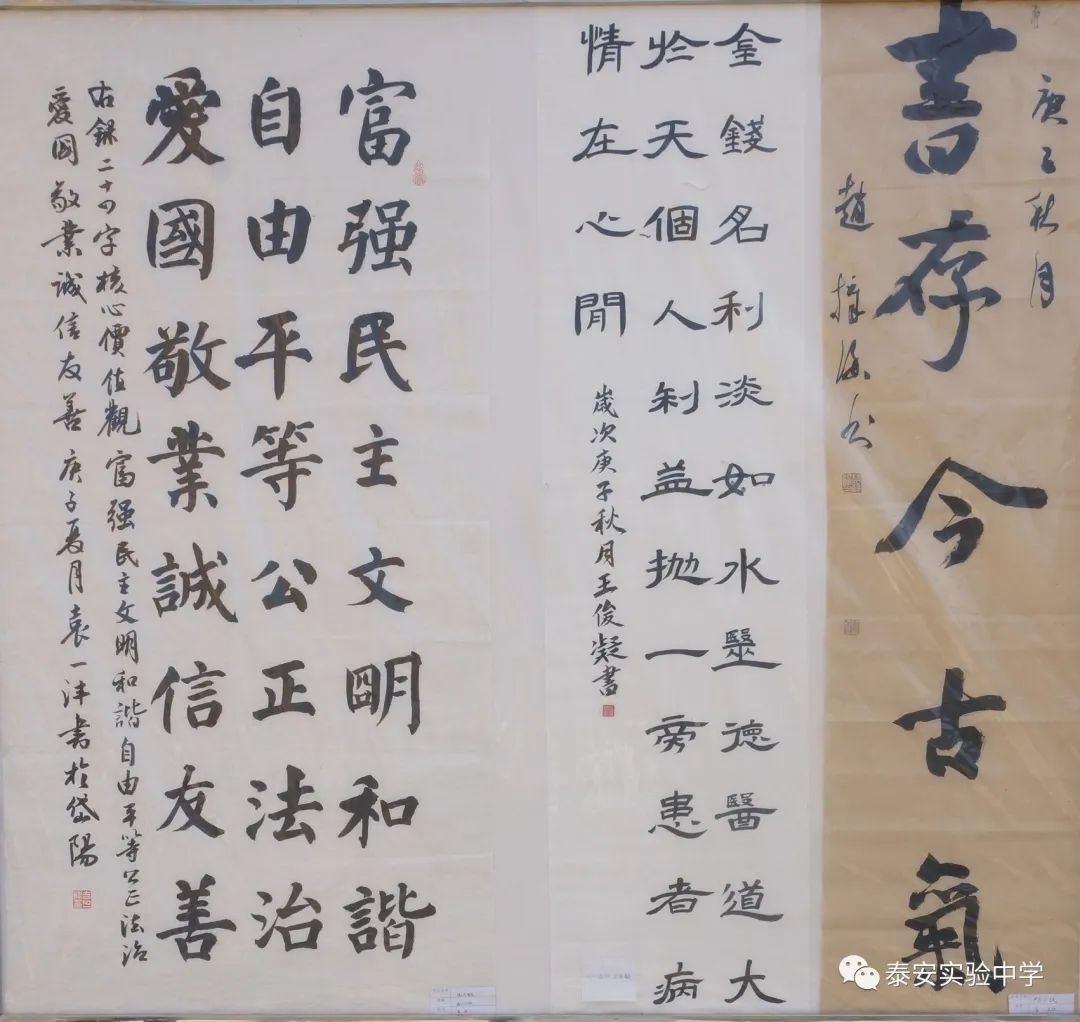 庚子秋月
書存今古氣
趙
金錢名利淡如水毉德醫道大
於天個人利益拋一旁患者病
情在心閒
歲次庚子秋月王俊凝書
富强民主文明和諧
自由平等公正法治
愛國敬業誠信友善
右錄二十四字核心價值觀富强民主文明和諧自由平等公正法治
愛國敬業誠信友善庚子夏月袁一沣書於岱陽
泰安实验中学